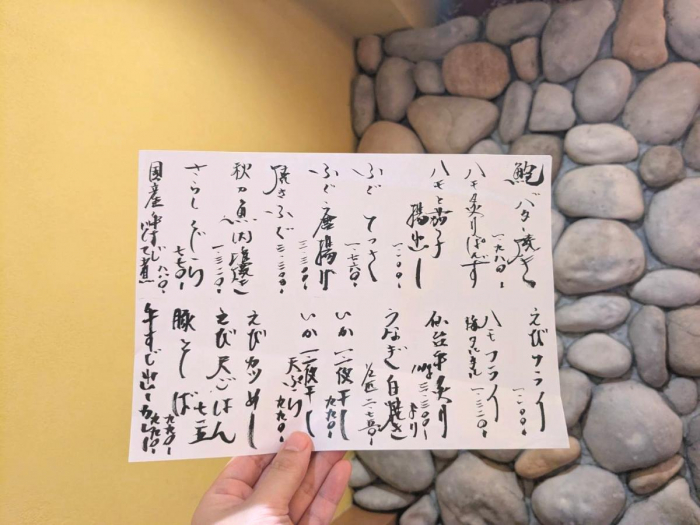 鮑バター焼き
一、九八〇-
ハモ炙りぽんず
ハモと茄子
揚出し
一、一〇〇-
ふぐてっさ
一、七六〇-
ふぐ唐揚げ
三、三〇〇-
焼きふぐ三、三〇〇-
秋刀魚(肉塩焼き
一、三二〇-
さらしくじら
七七〇-
国産
て煮
えびフライ
一、一〇〇-
ハモフライ
梅タルタル
一、三二〇-
仙台牛炙り
三、三〇〇-
より
うなぎ白焼き
二、七五〇-
いか一夜干し
九九〇-
いか一夜干し
天ぷら
九九〇-
えびカツめし
えび天ごはん
豚そば
九九〇-
牛すじ出しカレー
九九〇-